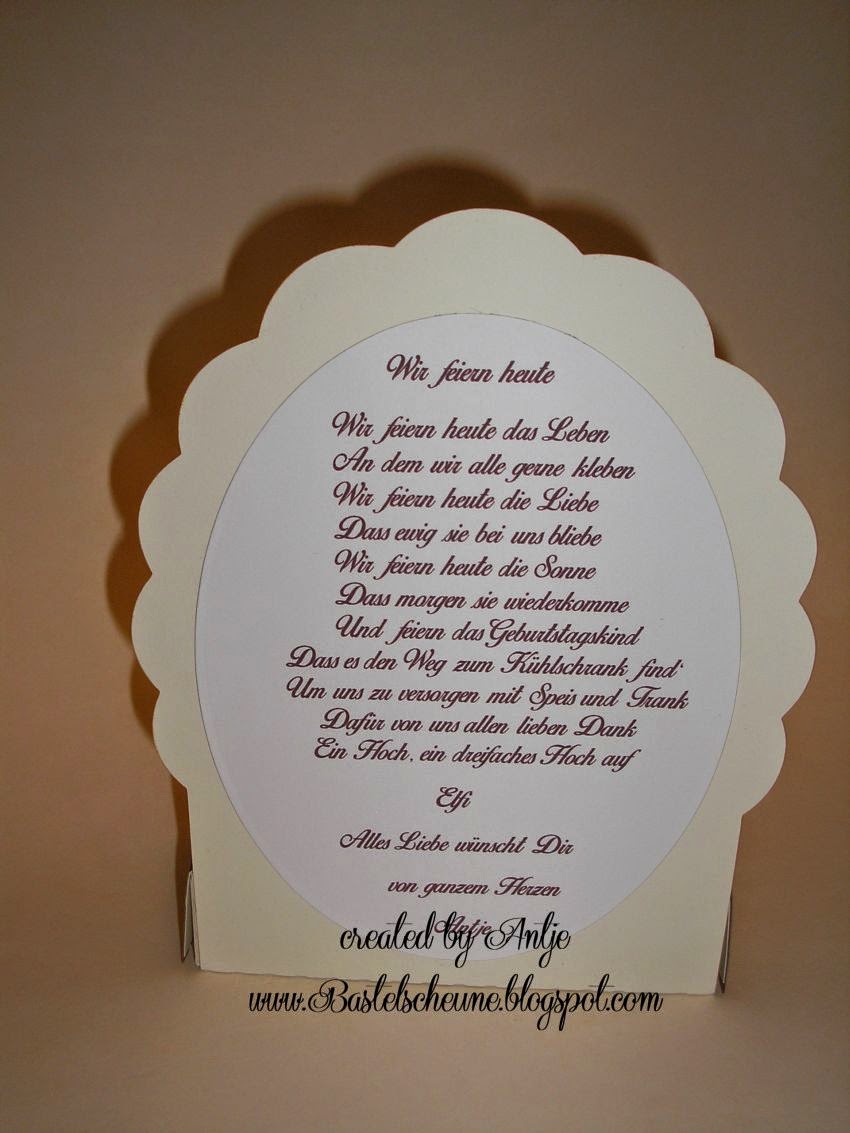 Wir feiern heute
Wir feiern heute das Leben
An dem wir alle gerne kleben
Wir feiern heute die Liebe
Dass ewig sie bei uns bliebe
Wir feiern heute die Sonne
Dass morgen sie wiederkomme
Und feiern das Geburtstagskind
Dass es den Weg zum Kühlschrank find'
Um uns zu versorgen mit Speis und Trank
Dafür von uns allen lieben Dank
Ein Hoch, ein dreifaches Hoch auf
Elfi
Alles Liebe wünscht Dir
von ganzem Herzen
Antje
created by Antje
www.Bastelscheune.blogspot.com